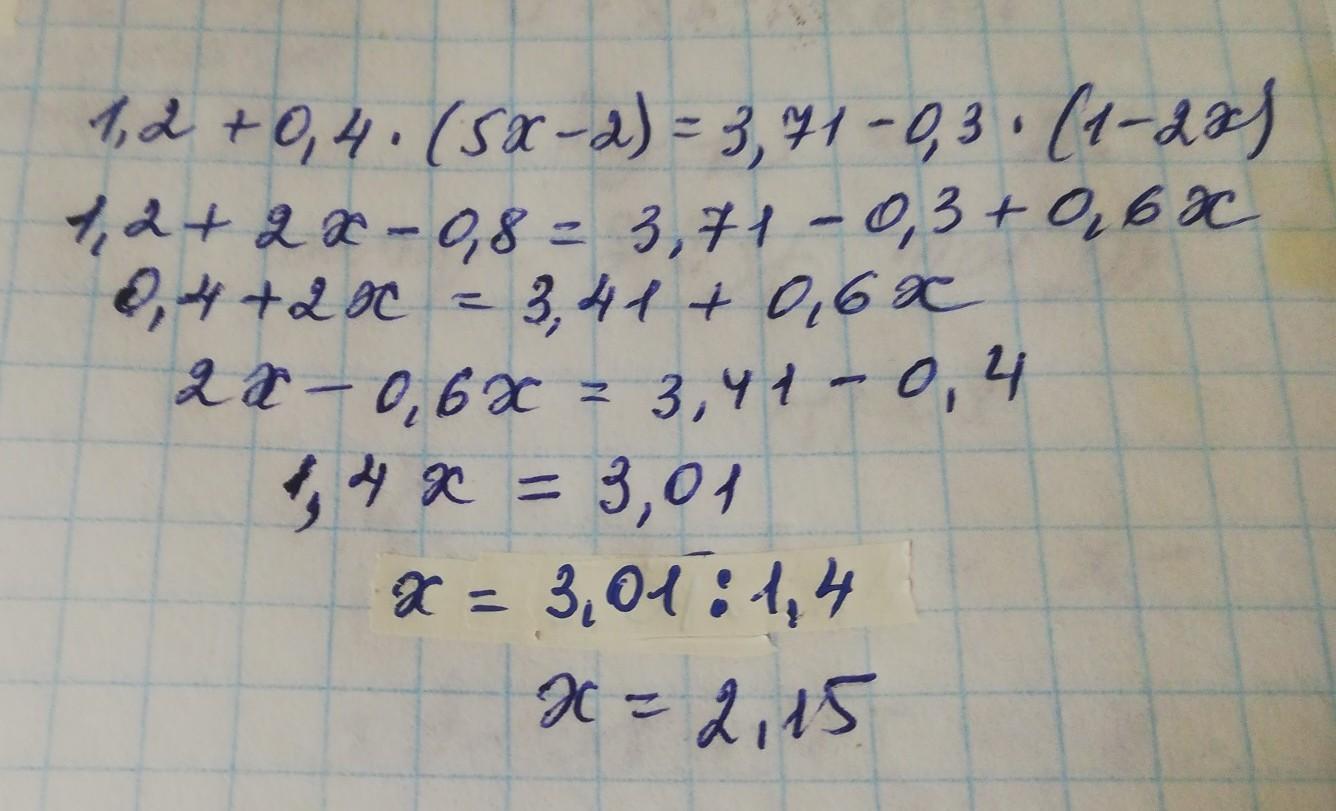 1,2 + 0,4 · (5x - 2) = 3,71 - 0,3 · (1 - 2x)
1,2 + 2x - 0,8 = 3,71 - 0,3 + 0,6x
0,4 + 2x = 3,41 + 0,6x
2x - 0,6x = 3,41 - 0,4
1,4x = 3,01
x = 3,01 : 1,4
x = 2,15